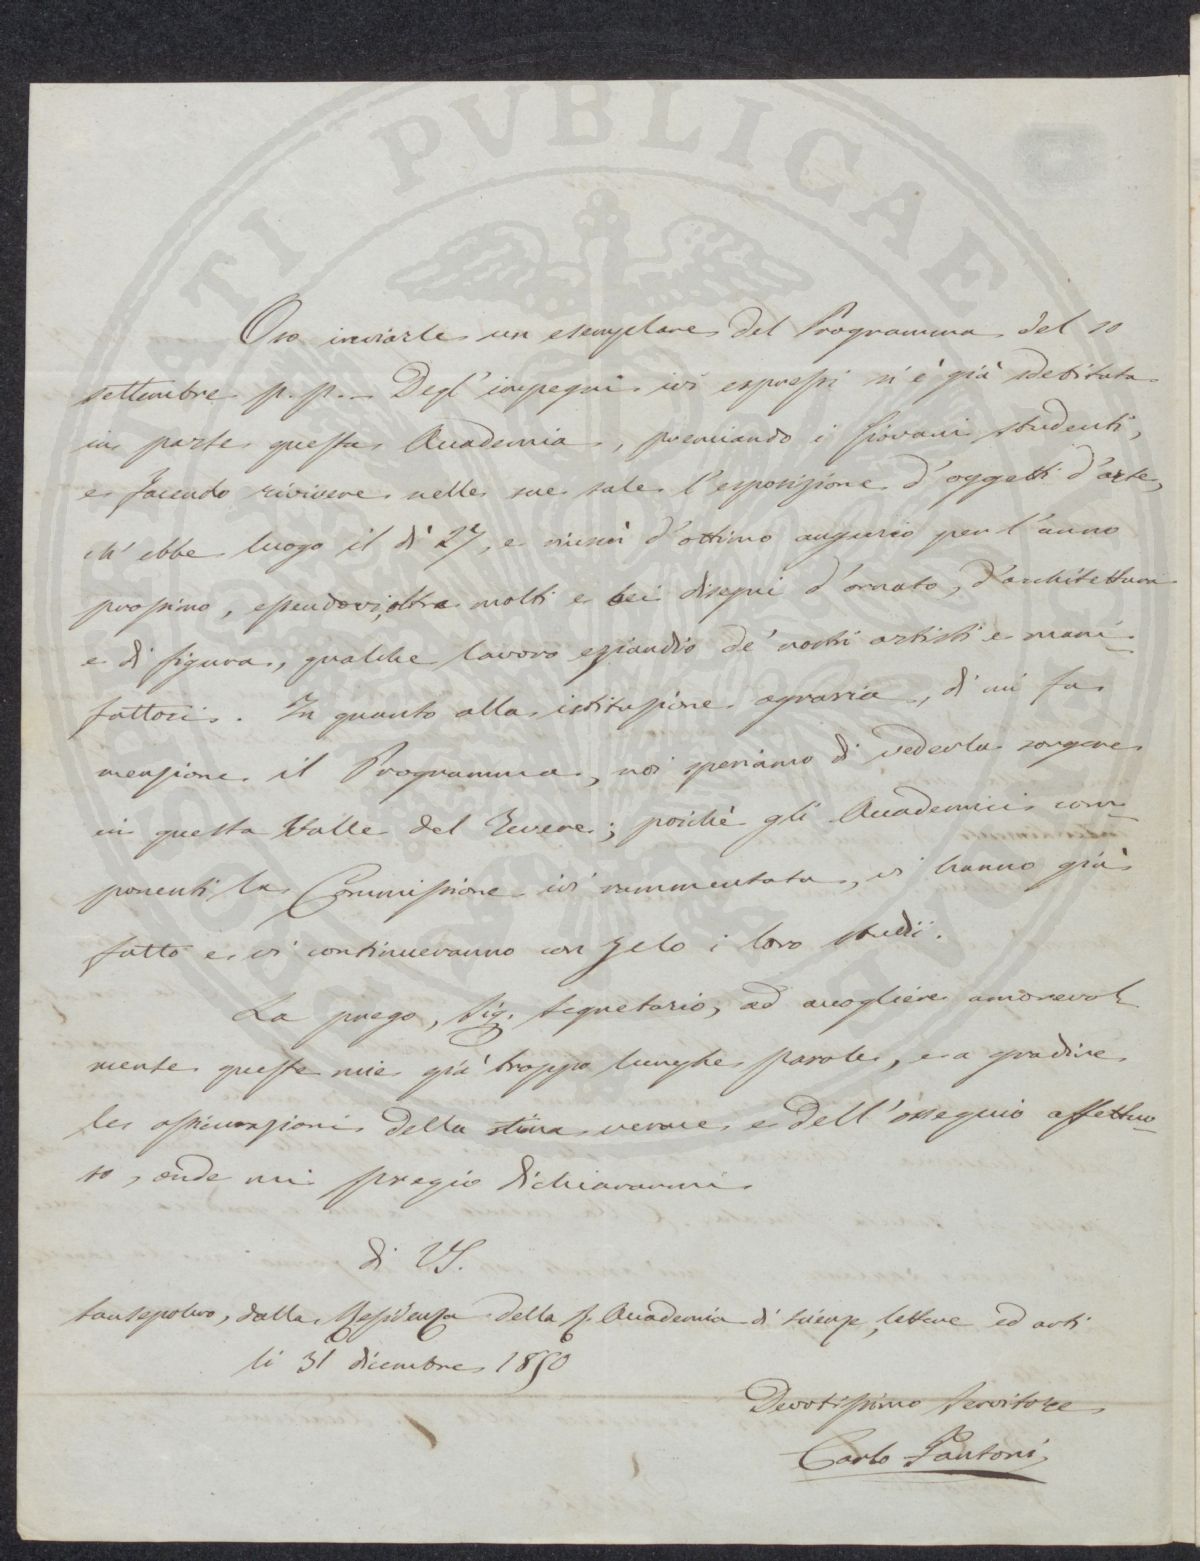 Oso inviarle un esemplare del Programma del 10
settembre p. p. — Degl' impegni ivi espressi si è già sdebitata
in parte questa Accademia, premiando i giovani studenti,
e facendo rivivere nelle sue sale l'esposizione d'oggetti d'arte,
ch' ebbe luogo il dì 27, e riuscì d'ottimo augurio per l'anno
prossimo, essendovi, oltre molti e bei disegni d'ornato, d'architettura
e di figura, qualche lavoro eziandio de' nostri artisti e mani-
fattori. In quanto alla istituzione agraria, di cui fa
menzione il Programma, noi speriamo di vederla sorgere
in questa Valle del Tevere; poichè gli Accademici com-
ponenti la Commissione ivi rammentata, vi hanno già
fatto e vi continueranno con zelo i loro studii.
La prego, Sig. Segretario, ad accogliere amorevol-
mente queste mie già troppo lunghe parole, e a gradire
le assicurazioni della stima verace e dell'ossequio affettuo-
so, onde mi pregio dichiararmi
di VS.
Sansepolcro, dalla Residenza della R. Accademia di scienze, lettere ed arti
li 31 dicembre 1850
Devotissimo Servitore
Carlo Fantoni